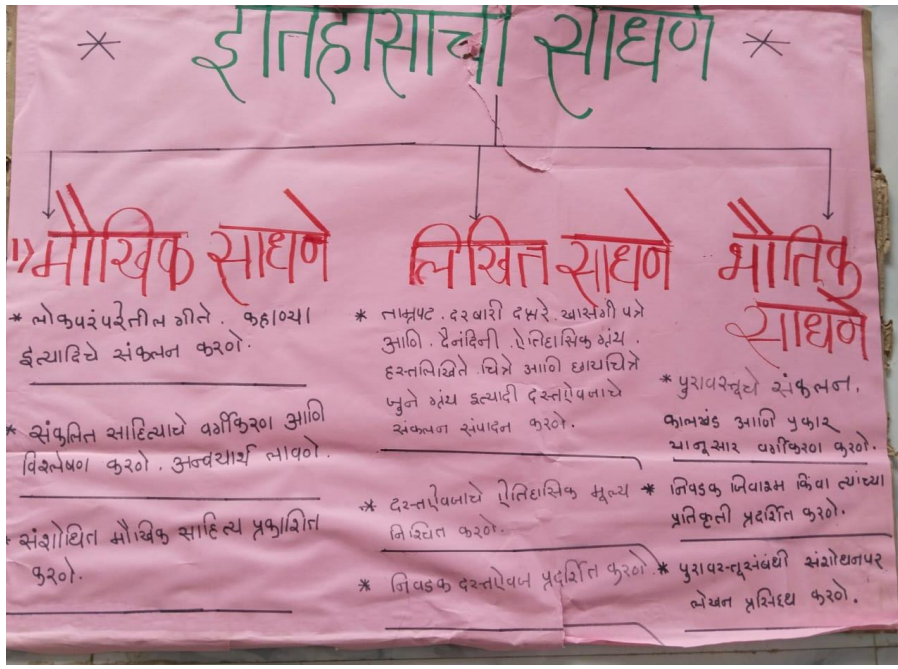 * इतिहासाची साधने *
१) मौखिक साधने
* लोकपरंपरेतील गीते. कहाण्या
इत्यादिचे संकलन करणे.
* संकलित साहित्याचे वर्गीकरण आणि
विश्लेषण करणे. अन्वयार्थ लावणे.
* संशोधित मौखिक साहित्य प्रकाशित
करणे.
लिखित साधने
* ताम्रपट. दरबारी दप्तरे. खासगी पत्रे
आणि. दैनंदिनी. ऐतिहासिक ग्रंथ.
हस्तलिखिते. चित्रे आणि छायचित्रे
जुने ग्रंथ इत्यादी दस्तऐवजाचे
संकलन संपादन करणे.
* दस्तऐवजाचे ऐतिहासिक मूल्य
निश्चित करणे.
* निवडक दस्तऐवज प्रदर्शित करणे.
भौतिक
साधने
* पुरावस्तूचे संकलन.
कालखंड आणि प्रकार
यानूसार वर्गीकरण करणे.
* निवडक जिवाश्म किंवा त्यांच्या
प्रतिकृती प्रदर्शित करणे.
* पुरावस्तूसंबंधी संशोधनपर
लेखन प्रसिध्द करणे.